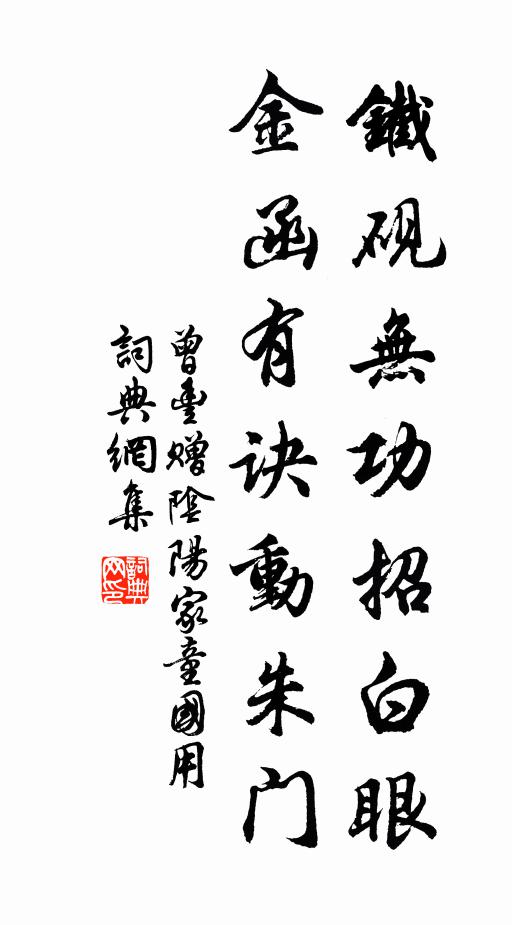 鐵硯無功招白眼
金函有诀動朱门
曾豐赠陰陽家童國用
詞典網集
詞典网印